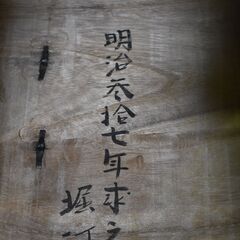 明治参拾七年求之
堀江